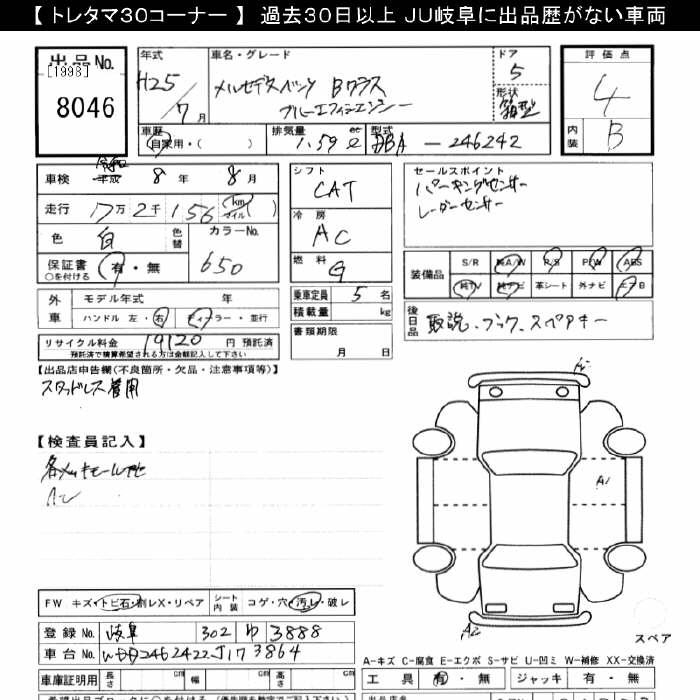 【 トレタマ30コーナー 】 過去30日以上 JU岐阜に出品歴がない車両
出品No. [1998] 8046
年式 H25/7月 車名・グレード メルセデスベンツ Bクラス ブルーエフィシェンシー ドア 5 形状 箱型
車歴 自家用・( ) 排気量 1.59 ℓ cc 型式 DBA-246242
評価点 4 内装 B
車検 平成 令和 8年 8月
走行 17万2千156 (km マイル)
色 白 色替 カラーNo. 650
保証書 ○を付ける 有・無
シフト CAT
冷房 AC
燃料 G
乗車定員 5名
積載量 kg
書類期限 月 日
セールスポイント
パーキングセンサー
レーダーセンサー
装備品 S/R 純A/W P/S P/W ABS
純TV 純ナビ 革シート 外ナビ エアB
後日品 取説、フック、スペアキー
外車 モデル年式 年
ハンドル 左・右 ディーラー・並行
リサイクル料金 19120 円 預託済
預託済で積算希望される方は金額記入して下さい
【出品店申告欄(不良箇所・欠品・注意事項等)】
スタッドレス着用
【検査員記入】
A2
A1
A2
スペア
FW キズ・トビ石・割レX・リペア シート内装 コゲ・穴・汚レ・破レ
登録No. 岐阜 302 ゆ 3888
車台No. WDD2462422J173864
A-キズ C-腐食 E-エクボ S-サビ U-凹ミ W-補修 XX-交換済
車庫証明用 長さ cm 幅 cm 高さ cm
工具 有・無 ジャッキ 有・無